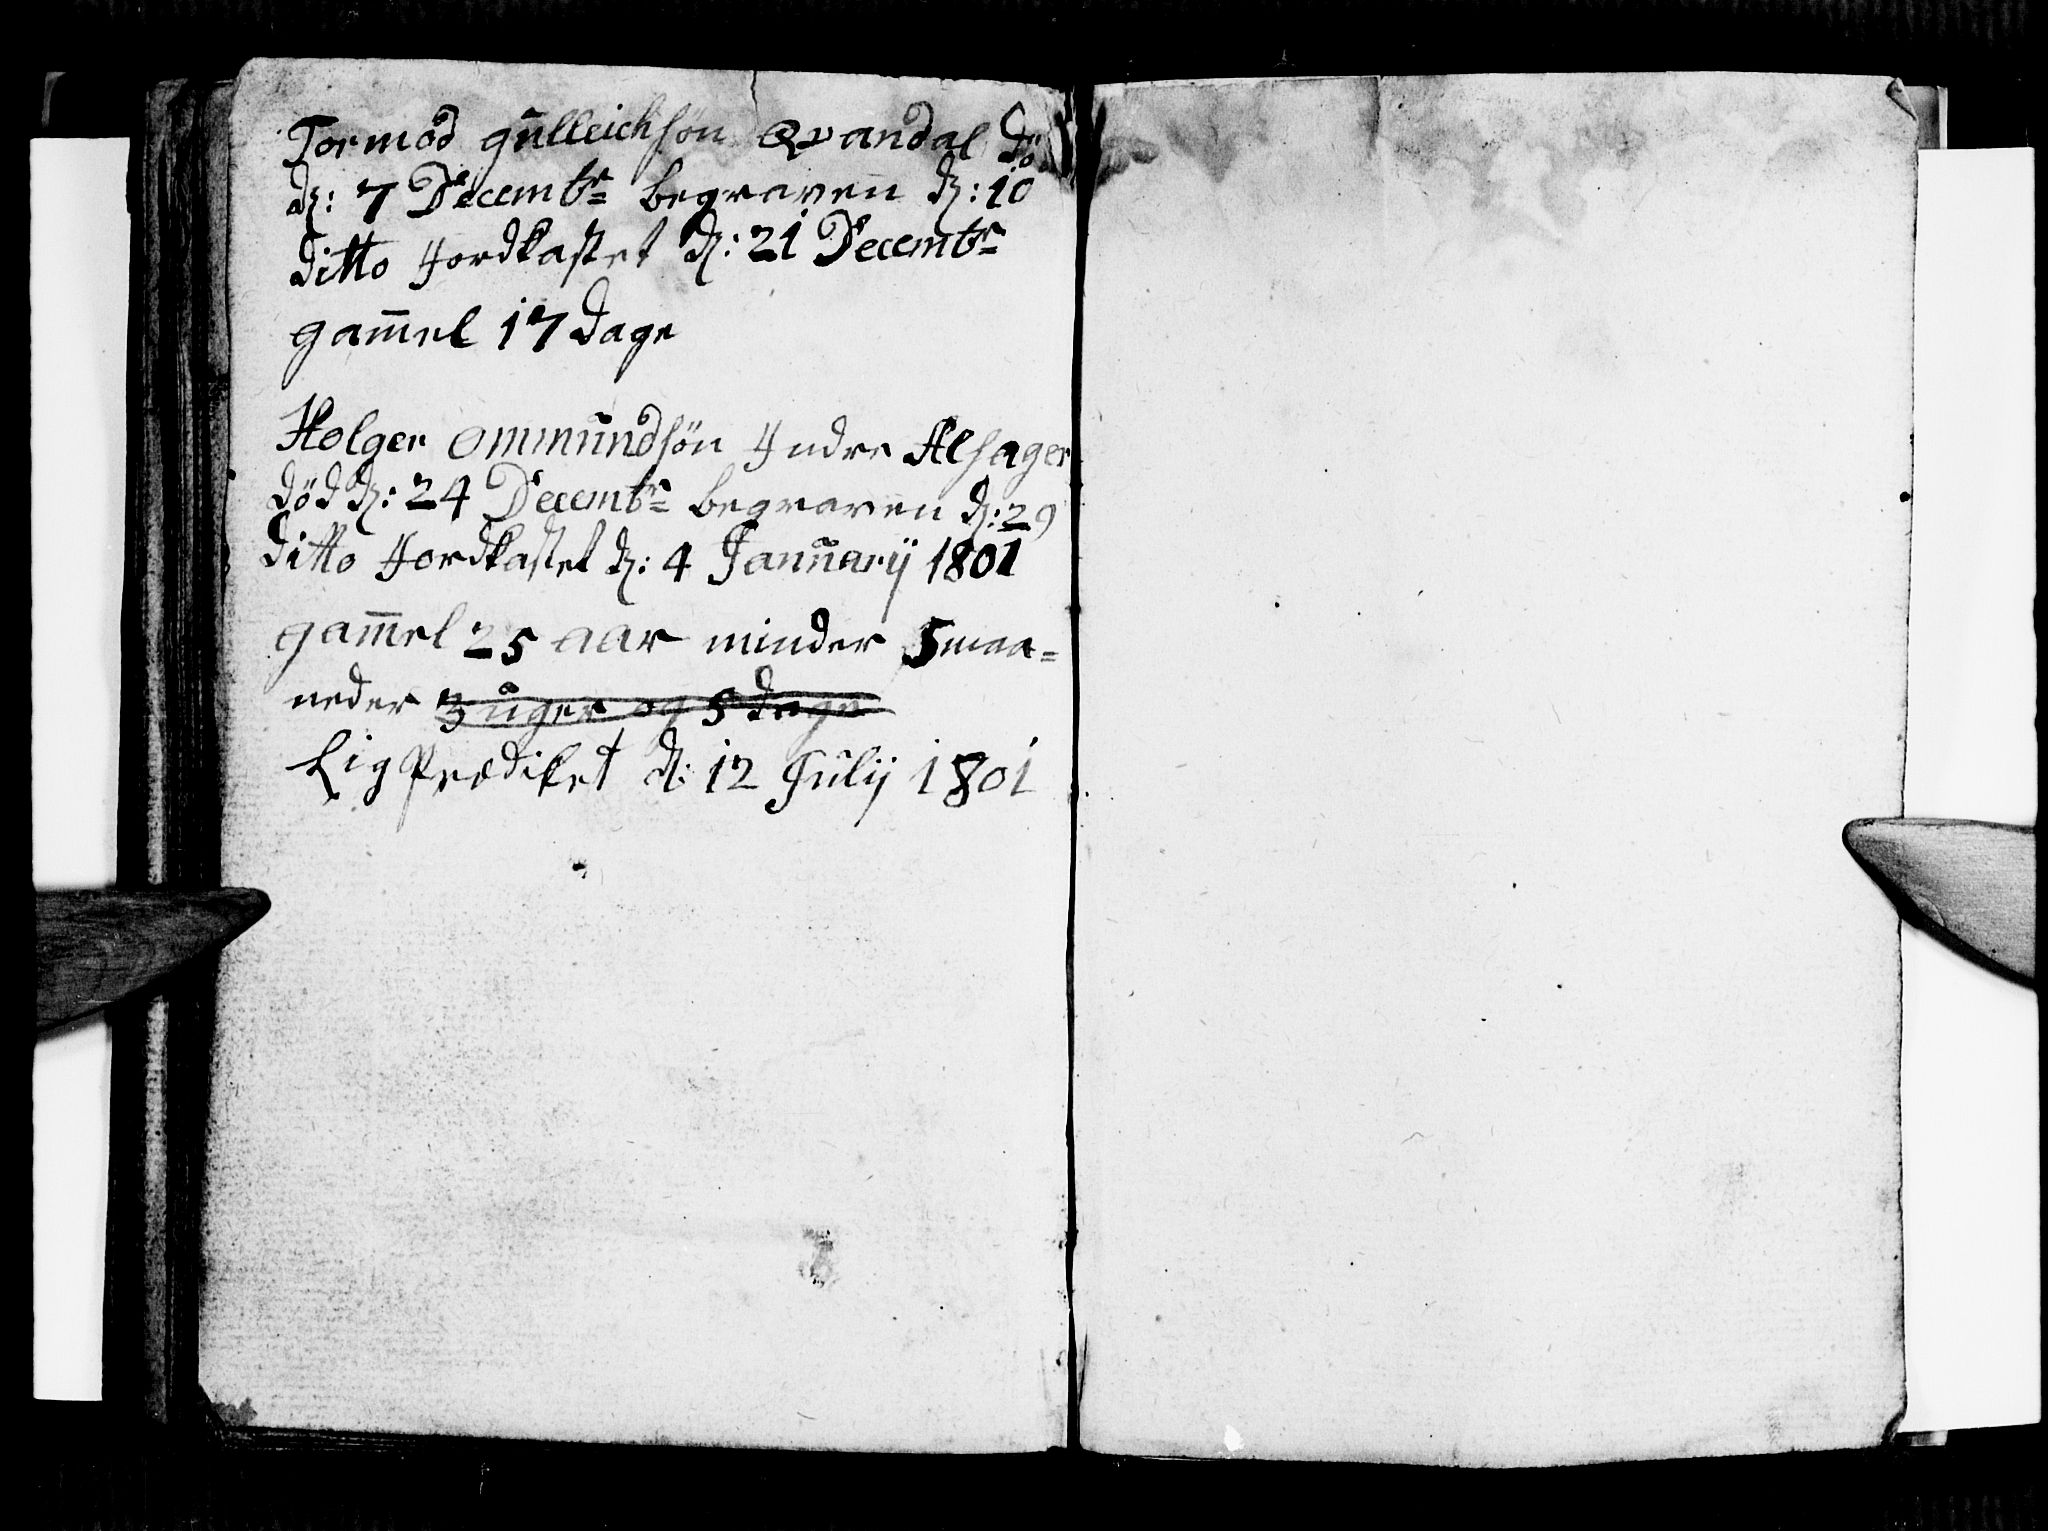 Tormod gulleichsøn Qvandal dö
d: 7 Decembr begraven d: 10
ditto Jordkastet d: 21 Decembr
gam̄el 17 dage
Holger Ommundsøn Indre Alsager
död d: 24 Decembr begraven d: 29
ditto Jordkastet d: 4 Januarij 1801
gam̄el 25 aar minder 5 maa=
neder 3 uger og 5 dage
Lig Prædiket d: 12 Julij 1801